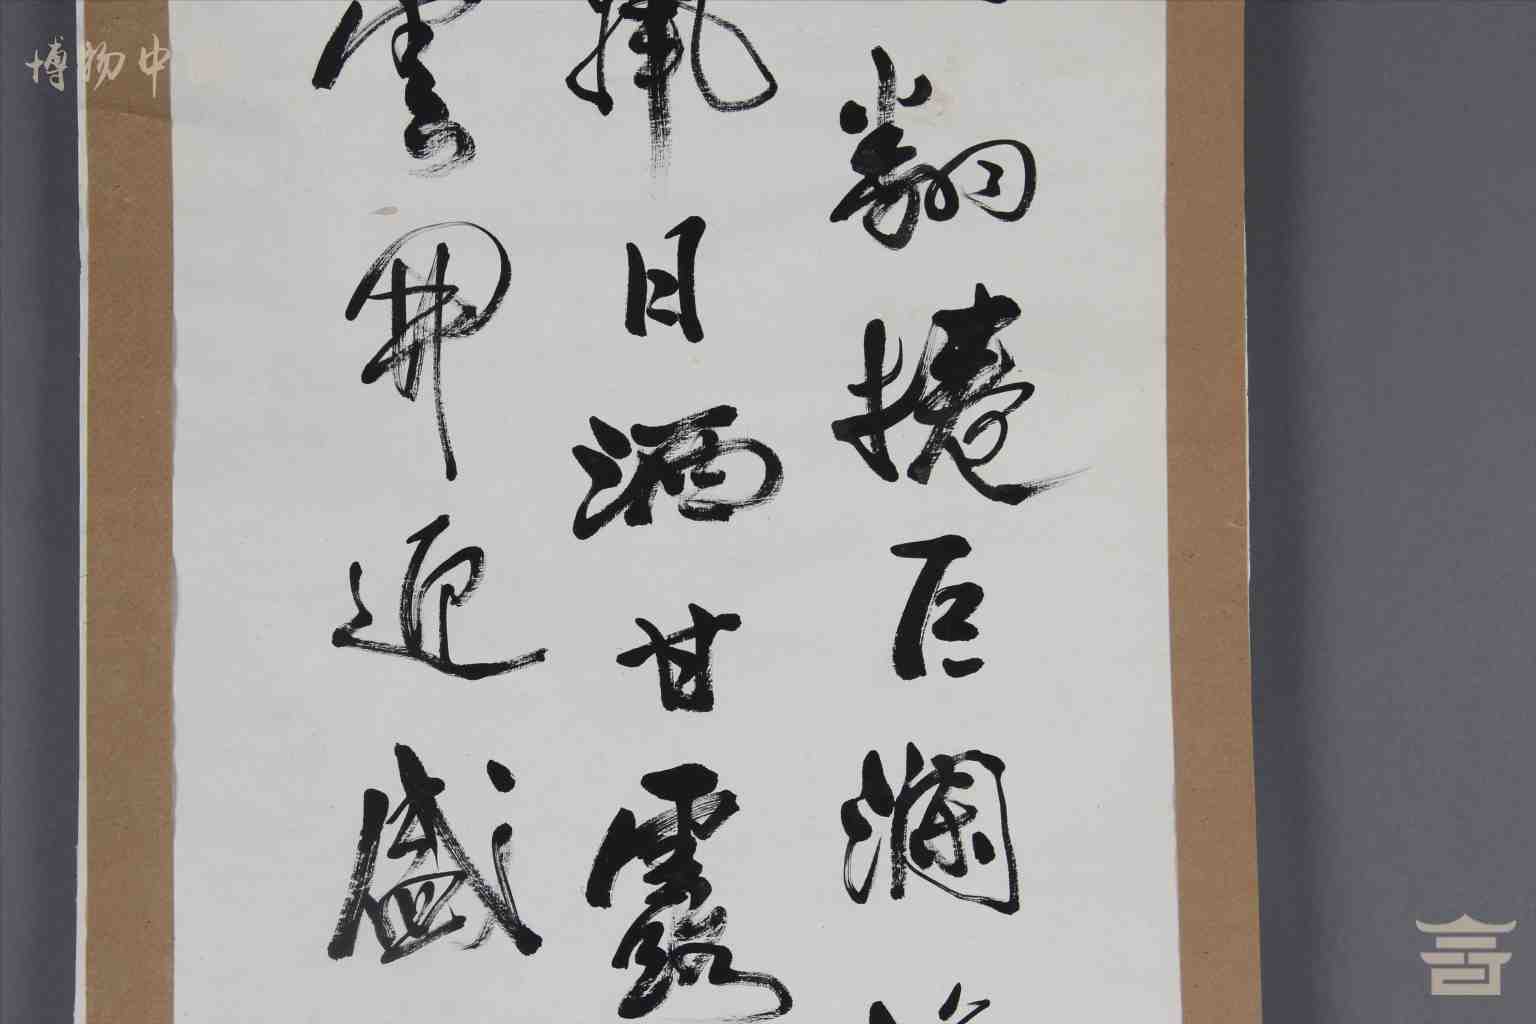 翻捲巨瀾
日洒甘露
雲開迎盛
博物中